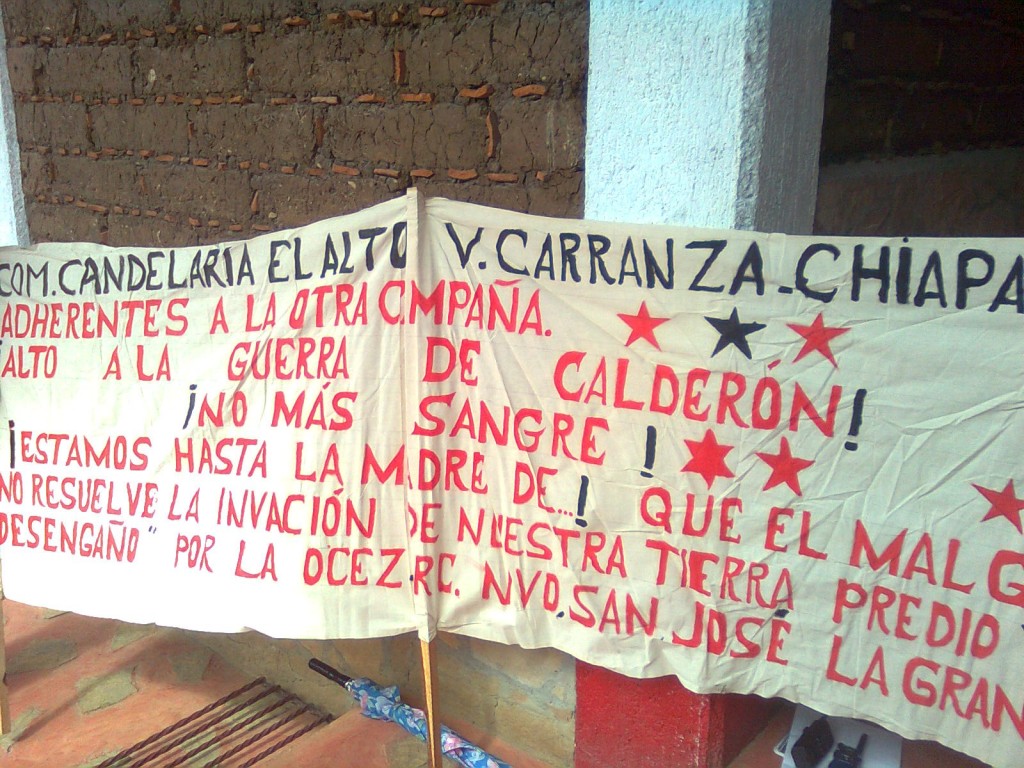 COM. CANDELARIA EL ALTO V. CARRANZA - CHIAPA
ADHERENTES A LA OTRA CAMPAÑA.
¡ALTO A LA GUERRA DE CALDERÓN!
¡NO MÁS SANGRE!
¡ESTAMOS HASTA LA MADRE DE...! QUE EL MAL G
NO RESUELVE LA INVACIÓN DE NUESTRA TIERRA PREDIO "
DESENGAÑO" POR LA OCEZ.RC. NVO. SAN JOSÉ LA GRAN